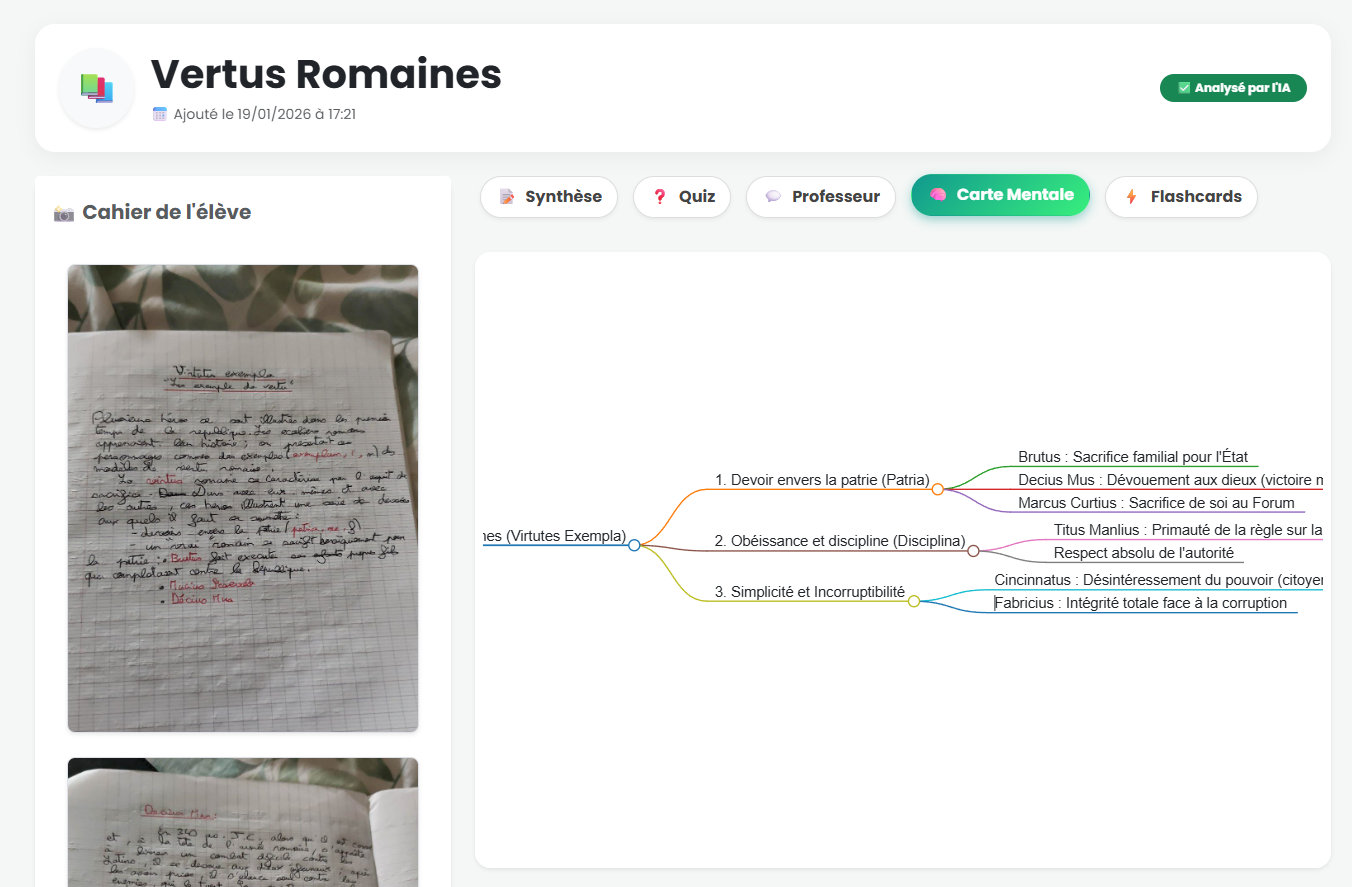 Vertus Romaines
Ajouté le 19/01/2026 à 17:21
Analysé par l'IA
Cahier de l'élève
Synthèse
Quiz
Professeur
Carte Mentale
Flashcards
Virtutis exempla
"Les exemple de vertu"
Plusieurs héros se sont illustrés dans les premiers
temps de la republique. Les écoliers romains
apprenaient leur histoire ; on présentait ces
personnages comme des exemples (exemplum, i, n) des
modèles de vertu romaine.
La virtus romaine se caractérise par l'esprit de
sacrifice. Durs avec eux-mêmes et avec
les autres, ces héros illustrent une série de devoirs
aux quels il faut se :
- devoirs envers la patrie (patria, ae, f)
un vrai romain se sacrifie pour
la patrie : Brutus fait executer ses propres fils
qui complotaient contre la République.
• Mucius
• Décius Mus
Decius Mus :
En 340 av. J.C, alors qu'il est
et, à la tête de l'armée romaine, s'apprête
à livrer un combat décisif contre les
Latins, il se dévoue aux dieux ; après
nes (Virtutes Exempla)
1. Devoir envers la patrie (Patria)
Brutus : Sacrifice familial pour l'État
Decius Mus : Dévouement aux dieux (victoire
Marcus Curtius : Sacrifice de soi au Forum
2. Obéissance et discipline (Disciplina)
Titus Manlius : Primauté de la règle sur la
Respect absolu de l'autorité
3. Simplicité et Incorruptibilité
Cincinnatus : Désintéressement du pouvoir (citoyen
Fabricius : Intégrité totale face à la corruption